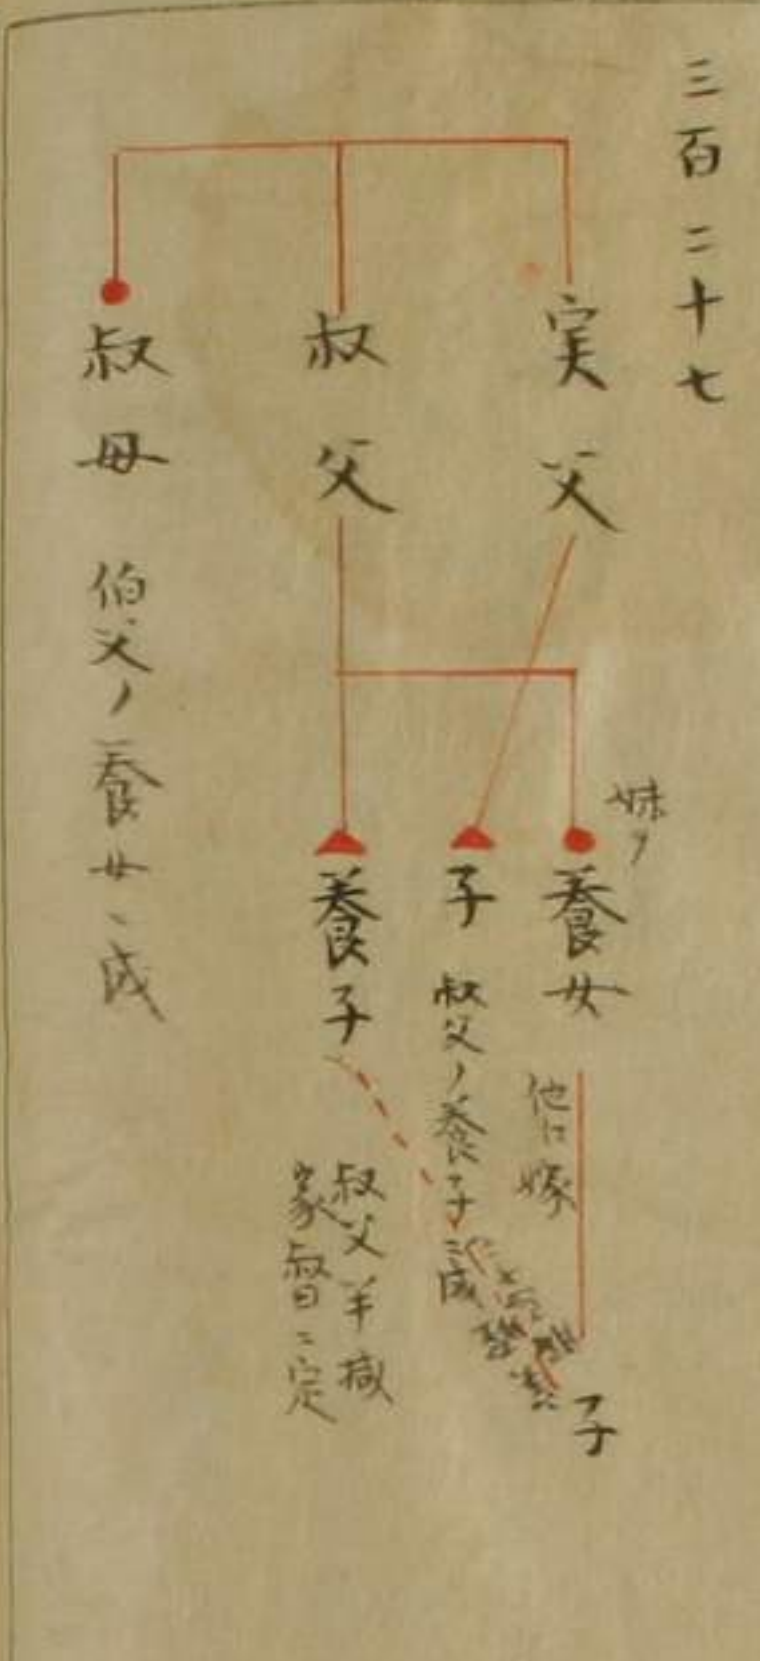 三百二十七
実父
叔父
叔母
伯父ノ養女ニ成
妹ヲ
養女
他江嫁
子
子
叔父ノ養子
ニ成
養子
叔父
家督ニ定